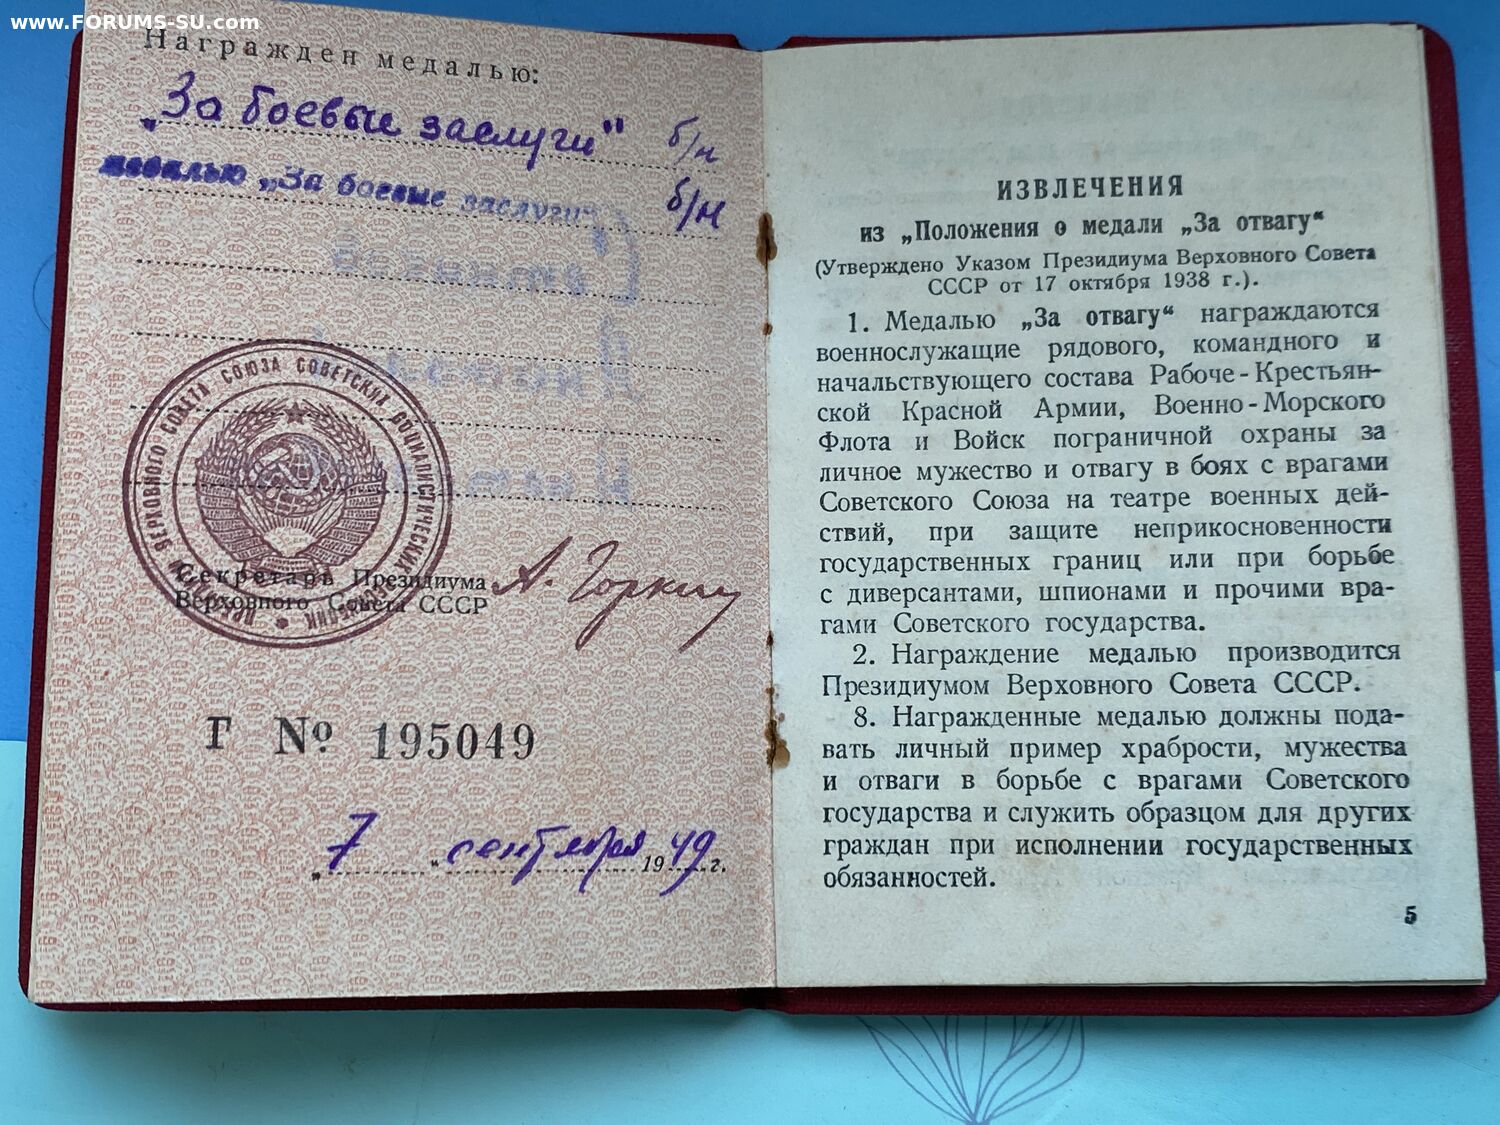 www.FORUMS-SU.com
Награжден медалью:
„За боевые заслуги" б/н
медалью „За боевые заслуги" б/н
ПРЕЗИДИУМ ВЕРХОВНОГО СОВЕТА СОЮЗА СОВЕТСКИХ СОЦИАЛИСТИЧЕСКИХ РЕСПУБЛИК
Секретарь Президиума
Верховного Совета СССР
А. Горкин
Г № 195049
„7" сентября 1949 г.
ИЗВЛЕЧЕНИЯ
из „Положения о медали „За отвагу“
(Утверждено Указом Президиума Верховного Совета
СССР от 17 октября 1938 г.).
1. Медалью „За отвагу“ награждаются
военнослужащие рядового, командного и
начальствующего состава Рабоче-Крестьян-
ской Красной Армии, Военно-Морского
Флота и Войск пограничной охраны за
личное мужество и отвагу в боях с врагами
Советского Союза на театре военных дей-
ствий, при защите неприкосновенности
государственных границ или при борьбе
с диверсантами, шпионами и прочими вра-
гами Советского государства.
2. Награждение медалью производится
Президиумом Верховного Совета СССР.
8. Награжденные медалью должны пода-
вать личный пример храбрости, мужества
и отваги в борьбе с врагами Советского
государства и служить образцом для других
граждан при исполнении государственных
обязанностей.
5